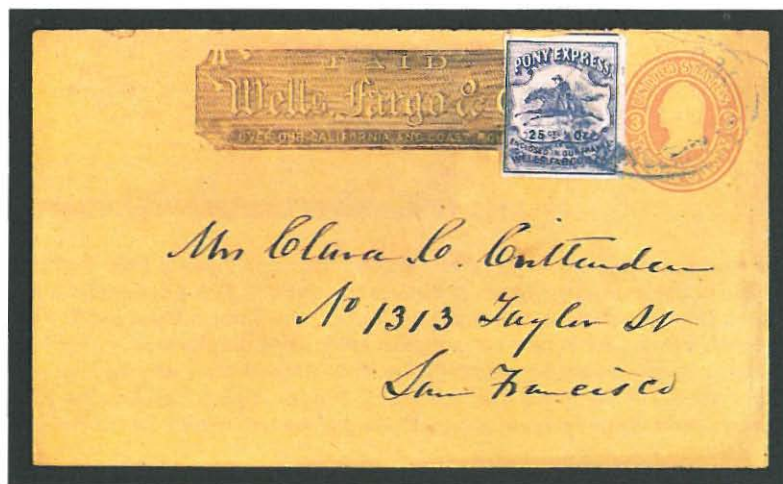 PAID
Wells, Fargo & C
OVER OUR CALIFORNIA AND COAST
PONY EXPRESS
25 CTS ½ OZ
ENCLOSED IN OUR FRANKS
WELLS, FARGO &
UNITED STATES
3 3
Mrs Clara C. Crittenden
No 1313 Taylor St
San Francisco